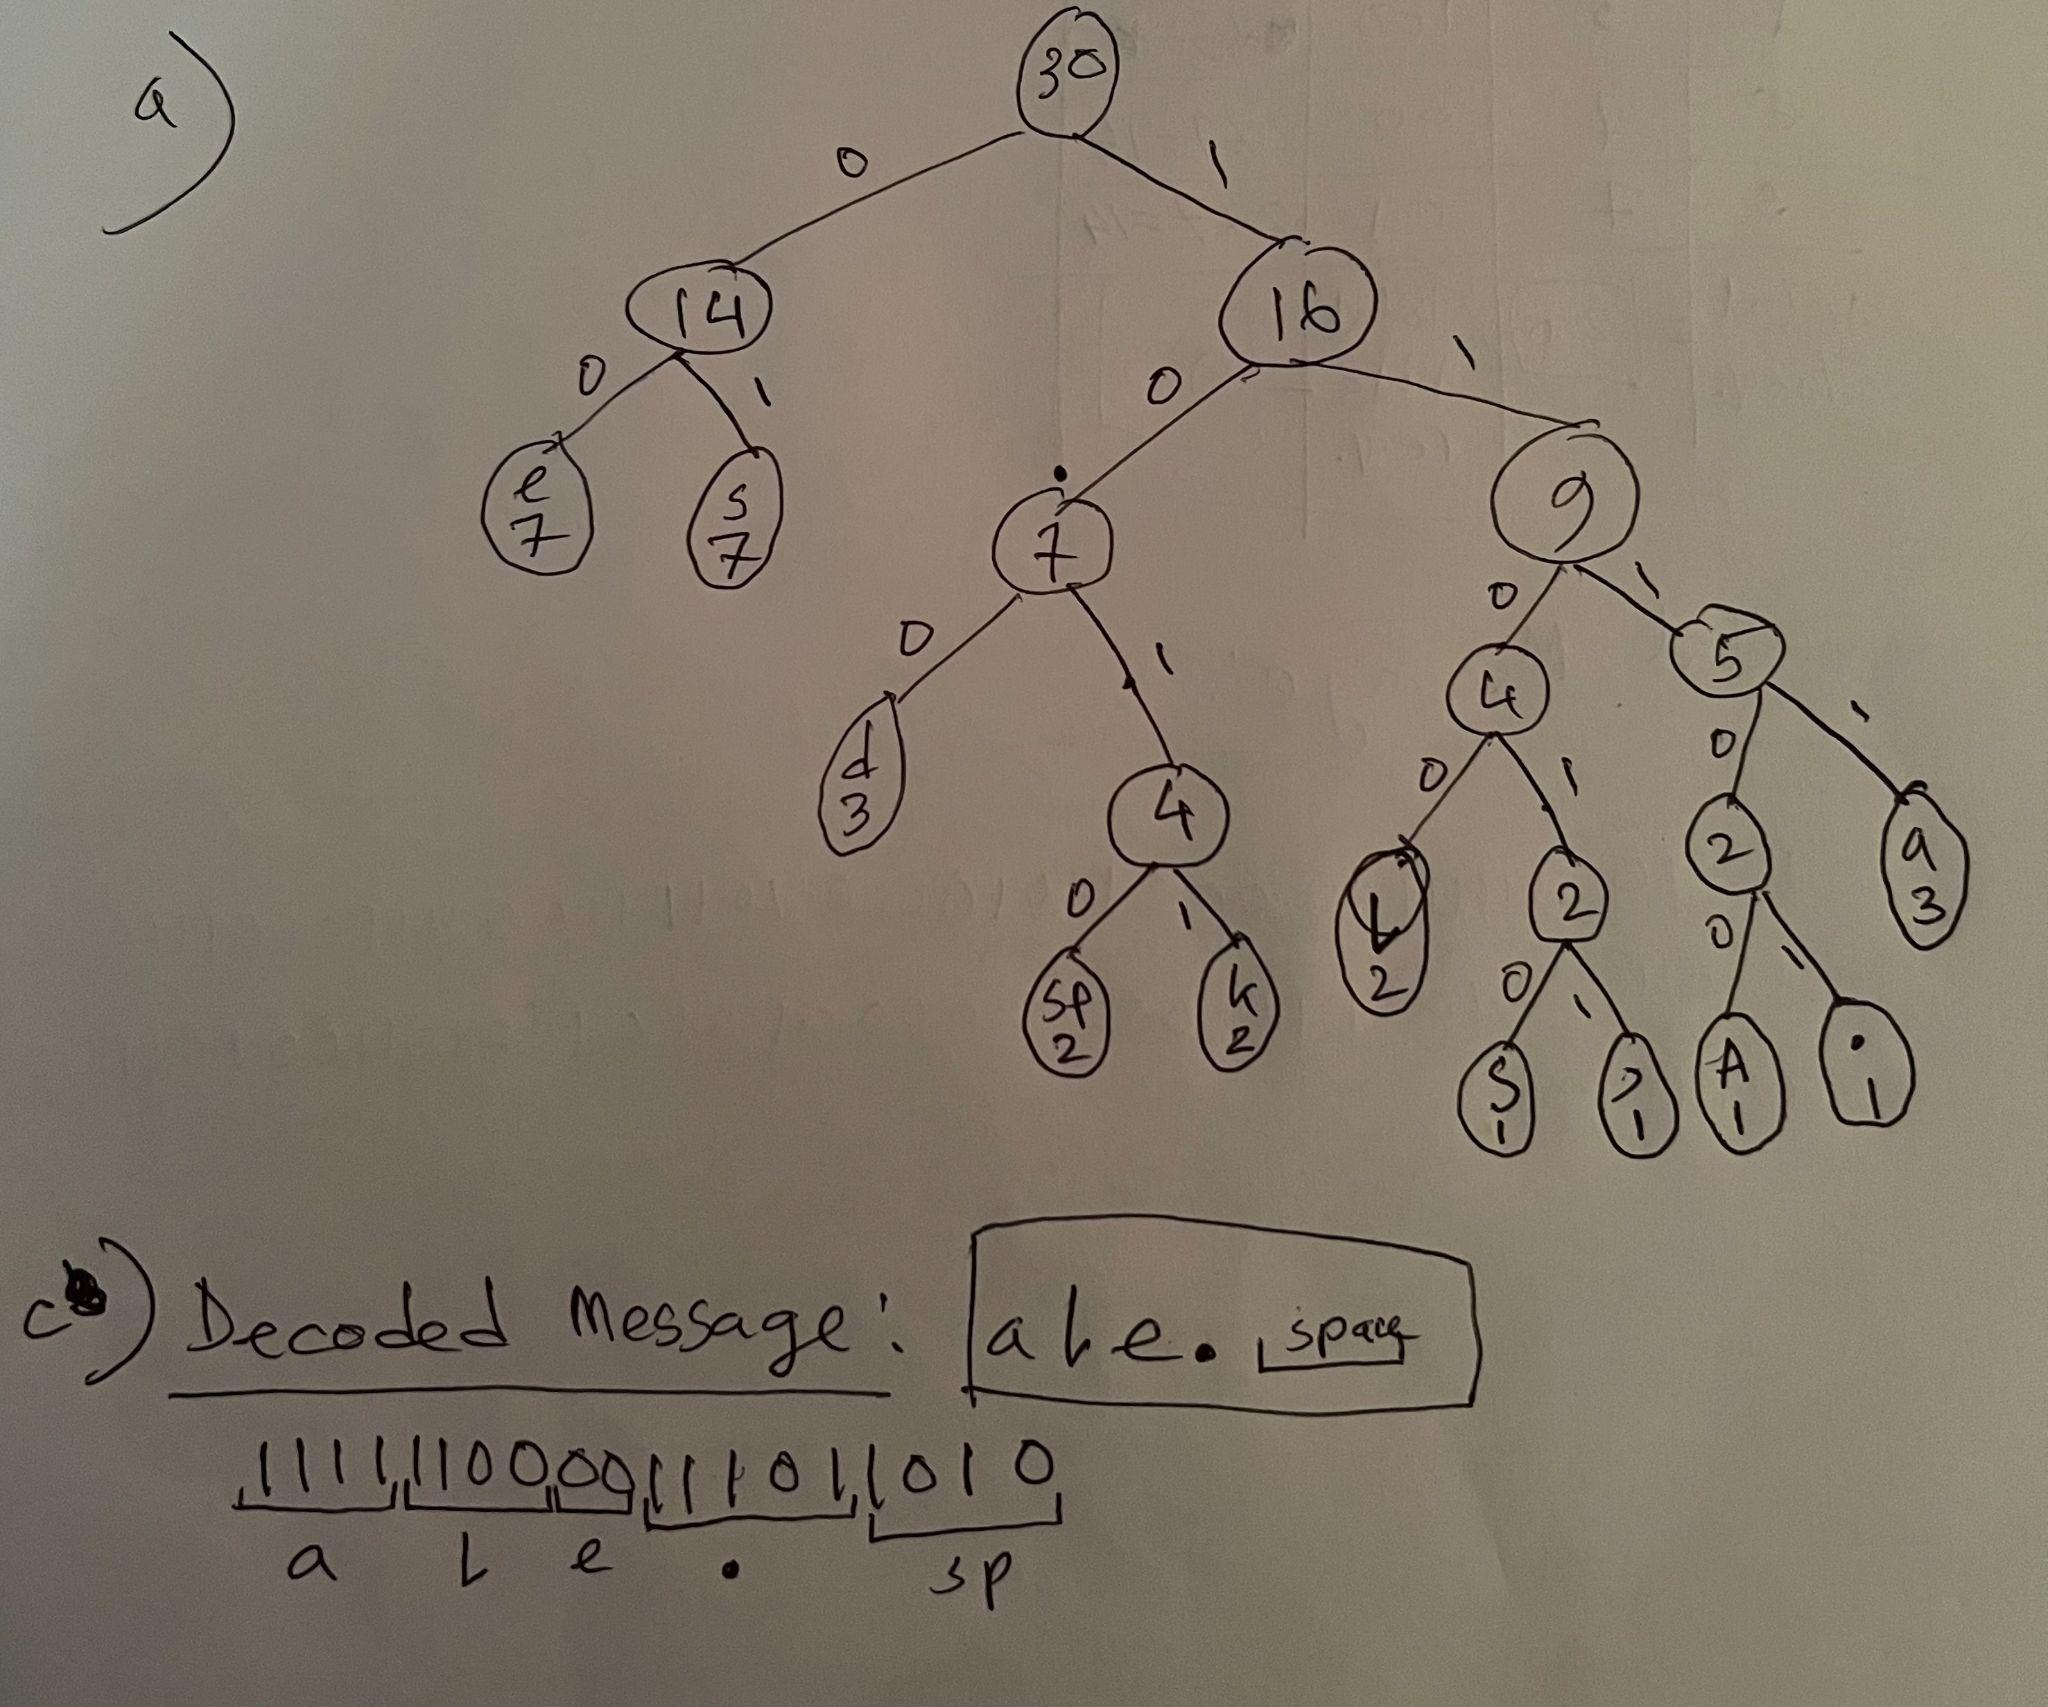 a)
30
0 1
14 16
0 1 0 1
e 7 s 7 7 9
0 1 0 1
d 3 4 4 5
0 1 0 1 0 1
sp 2 k 2 L 2 2 2 a 3
0 1 0 1
S 1 1 A 1 . 1
c) Decoded Message: aLe. space
1111110000111011010
a L e . sp